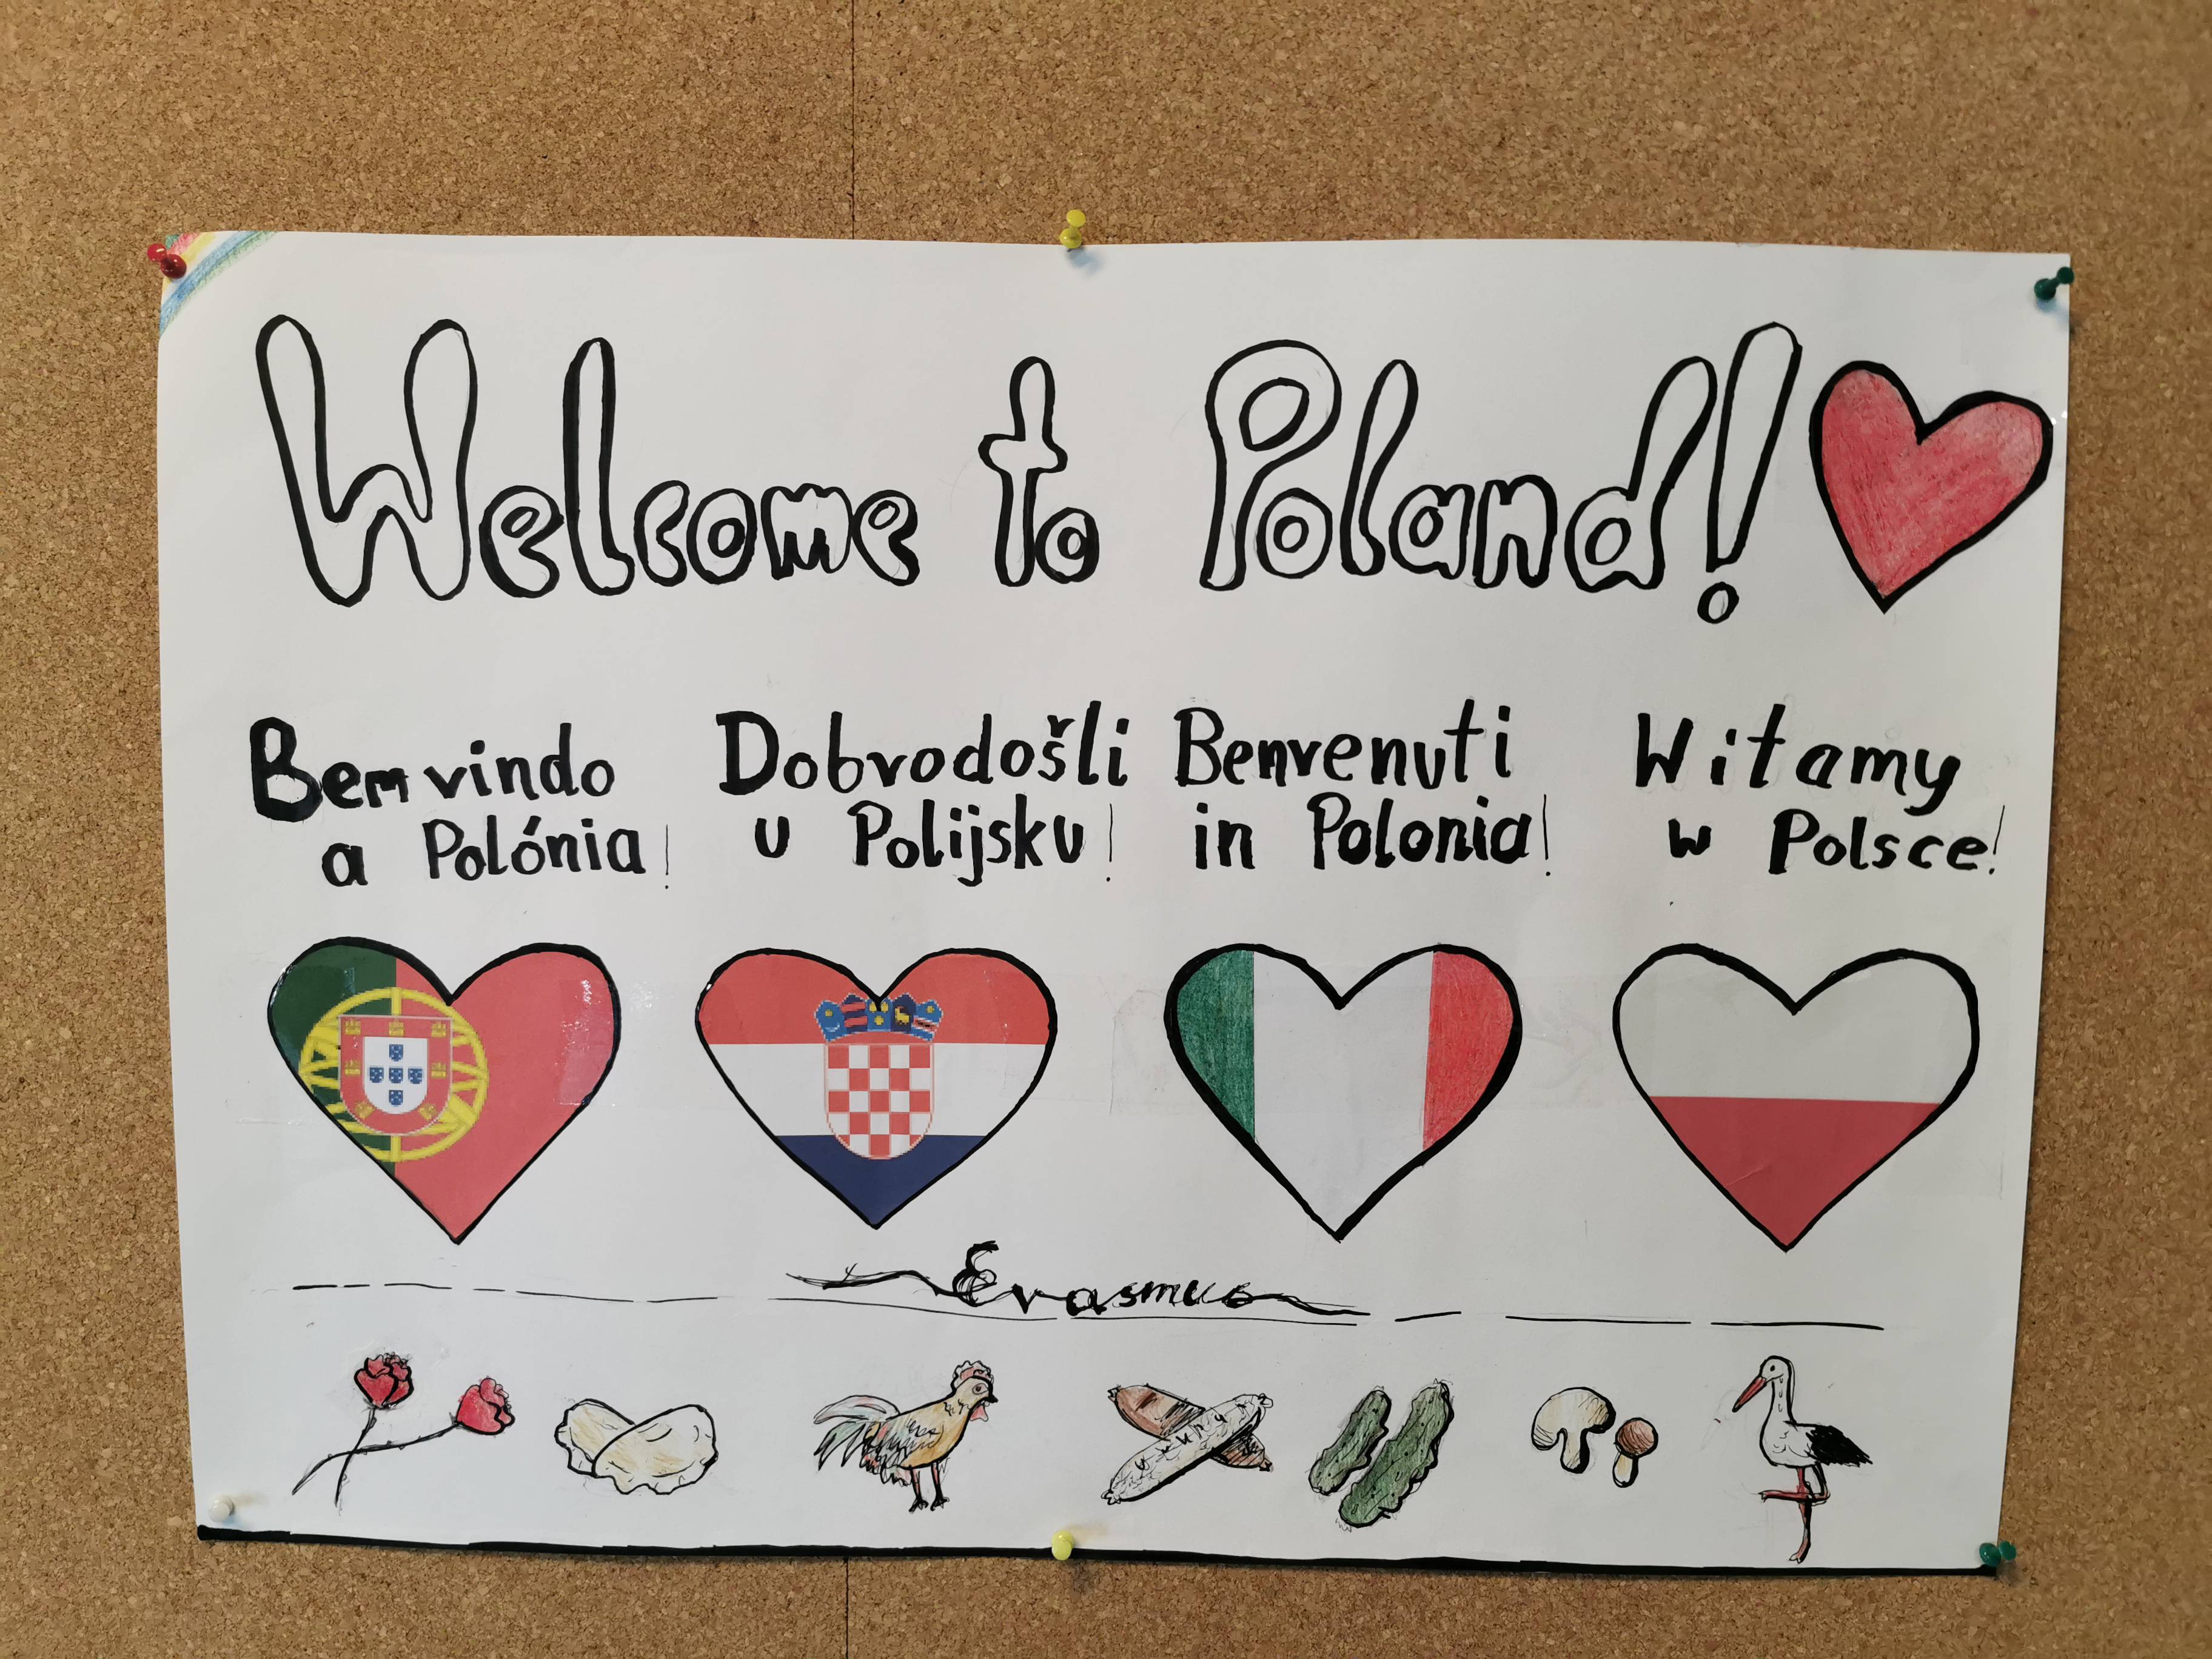 Welcome to Poland!
Bem vindo
a Polónia!
Dobrodošli
u Polijsku!
Benvenuti
in Polonia!
Witamy
w Polsce!
Erasmus